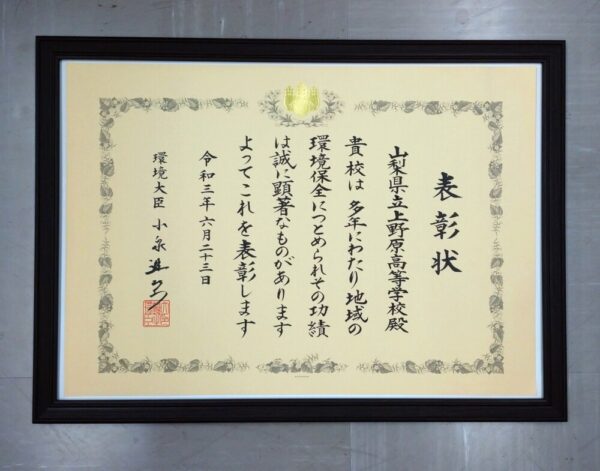 表彰状
山梨県立上野原高等学校殿
貴校は多年にわたり地域の
環境保全につとめられその功績
は誠に顕著なものがあります
よってこれを表彰します
令和三年六月二十三日
環境大臣 小泉進次郎